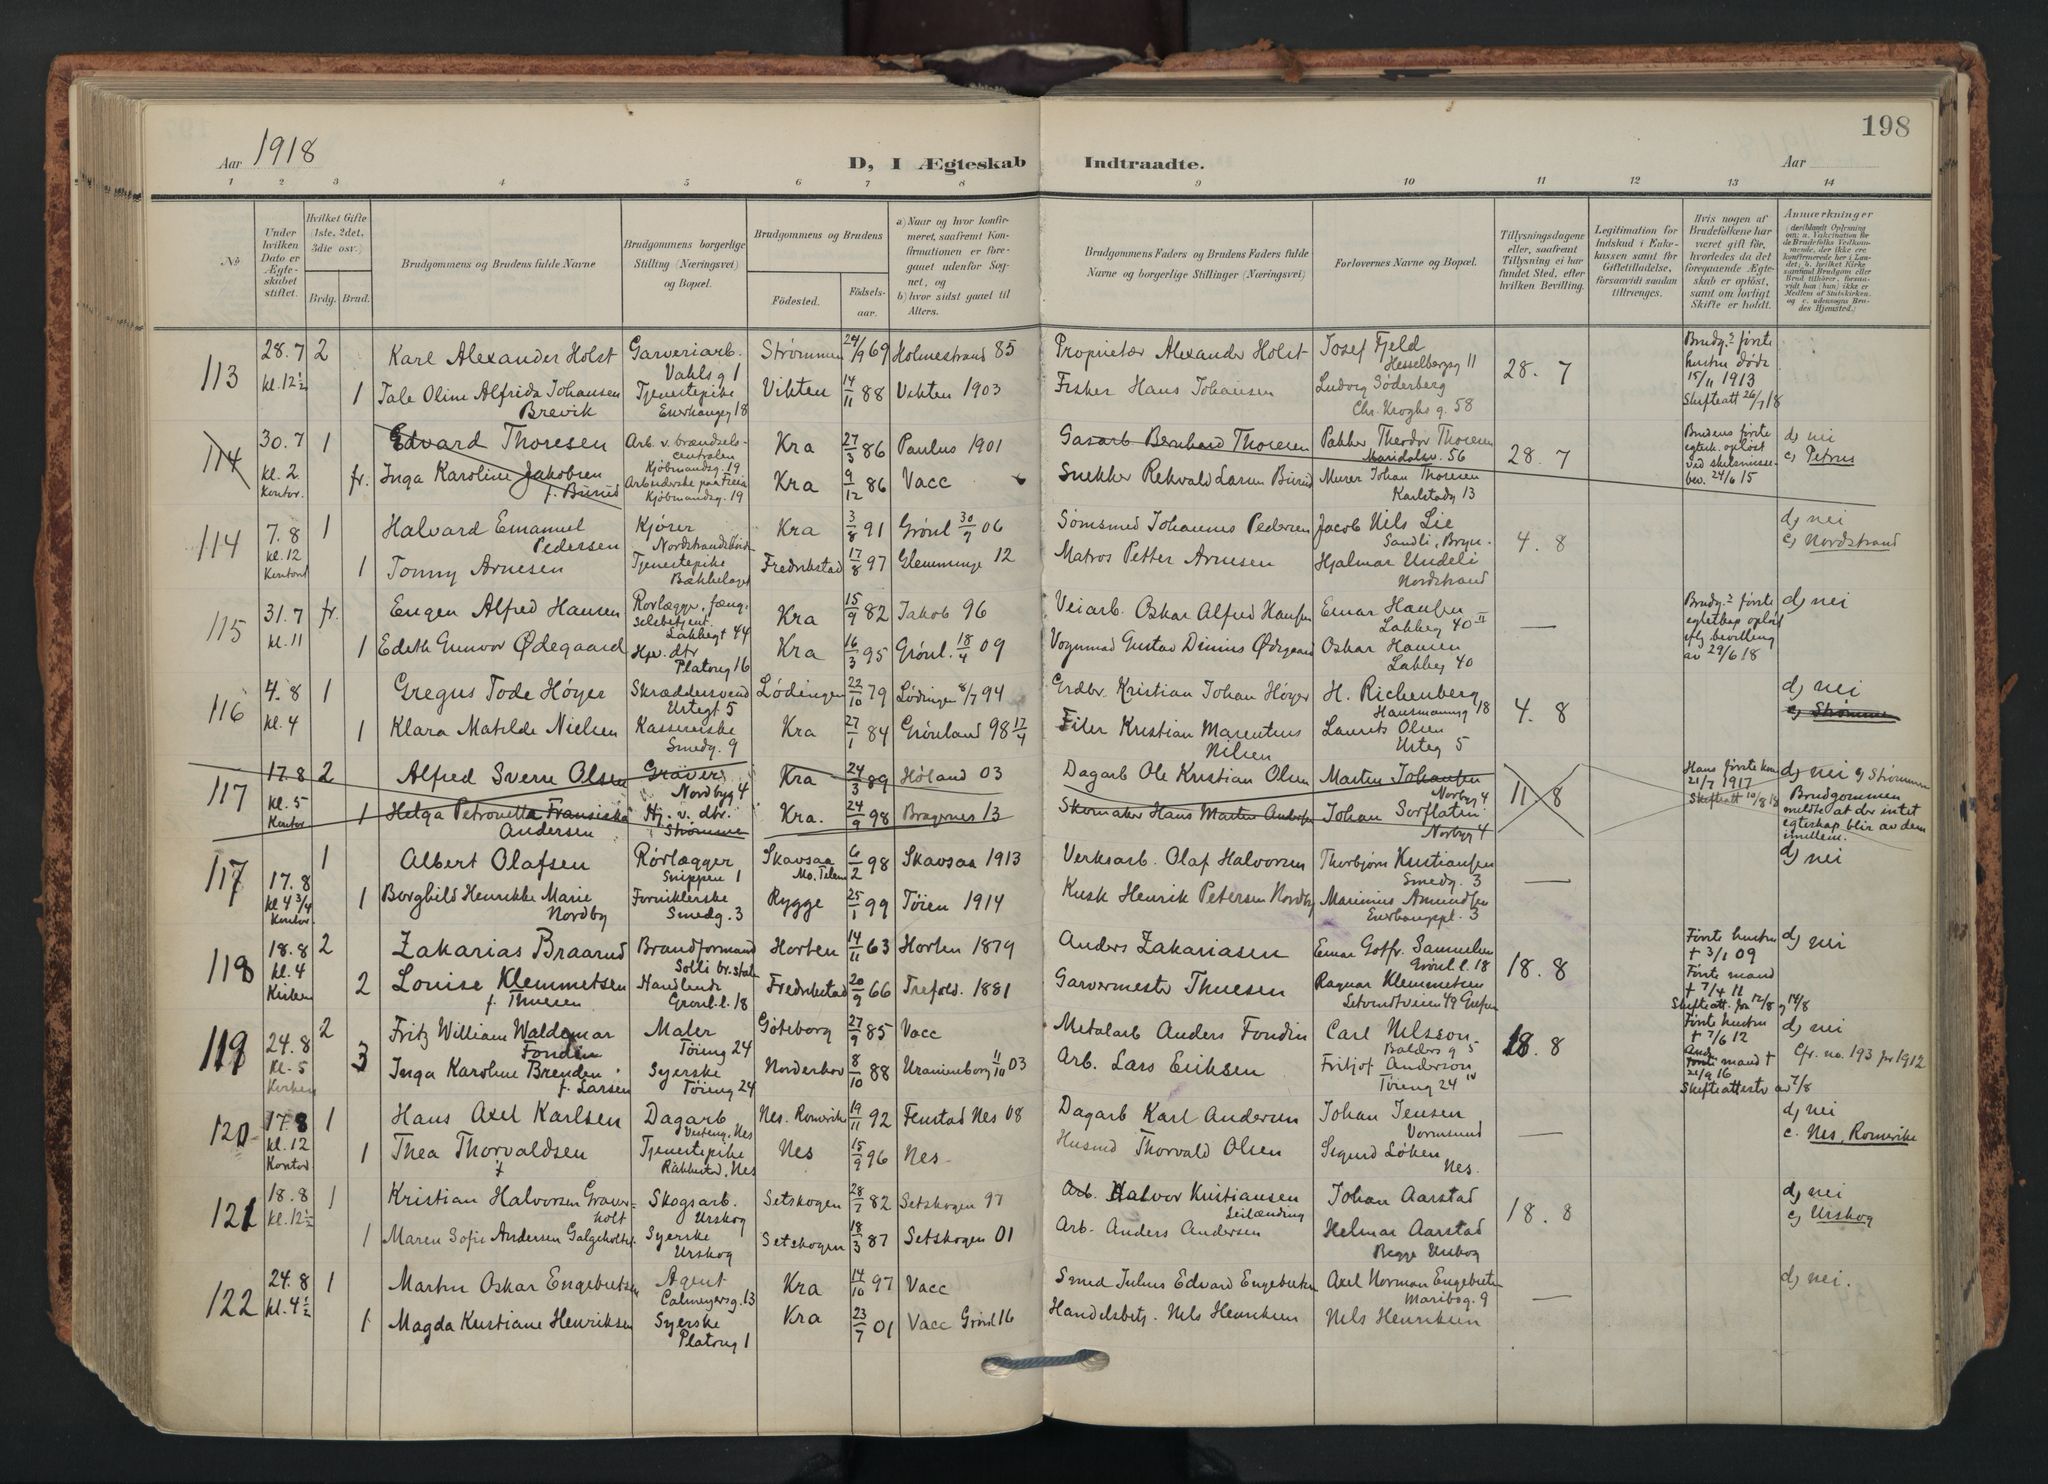 198
Aar 1918
D, I Ægteskab Indtraadte.
Aar
1 2 3 4 5 6 7 8 9 10 11 12 13 14
No
Under hvilken Dato er Ægteskabet stiftet.
Hvilket Gifte (1ste, 2det, 3die osv.)
Brdg. Brud.
Brudgommens og Brudens fulde Navne
Brudgommens borgerlige Stilling (Næringsvei) og Bopæl.
Brudgommens og Brudens
Födested. Födselsaar.
a) Naar og hvor konfirmeret, saafremt Konfirmationen er foregaaet udenfor Sognet, og
b) hvor sidst gaaet til Alters.
Brudgommens Faders og Brudens Faders fulde Navne og borgerlige Stillinger (Næringsvei)
Forlovernes Navne og Bopæl.
Tillysningsdagene eller, saafremt Tillysning ei har fundet Sted, efter hvilken Bevilling.
Legitimation for Indskud i Enkekassen samt for Giftetilladelse, forsaavidt saadan tiltrænges.
Hvis nogen af Brudefolkene har været gift før, hvorledes da det foregaaende Ægteskab er opløst, samt om lovligt Skifte er holdt.
Anmærkninger
113 28.7 2 Karl Alexander Holst Garveriarb. Strømmen 24/9 69 Holmestrand 85 Proprietær Alexander Holst Josef Fjeld 28. 7 Brudg.s første
kl. 12½ Vahlsg 1 Hesselbergsg 11 hustru døde
1 Tale Oline Alfrida Johansen Tjenestepike Vikten 14/11 88 Vikten 1903 Fisker Hans Johansen Ludvig Söderberg 15/11 1913
Brevik Enerhaugg 18 Chr. Kroghs g. 58 Skifteatt 26/7 18
114 30.7 1 Edvard Thoresen Arb. v. brændselscentralen Kra 27/3 86 Paulus 1901 Gasarb Bernhard Thoresen Pakker Theodor Thoresen 28. 7 Brudens første d) nei
kl. 2 Kjøbmandsg. 19 Maridalsv. 56 egtesk. opløst c) Petrus
Kontor. fr. Inga Karoline Jakobsen Kra 9/12 86 Vacc Snekker Rekvald Larsen Burud Murer Johan Thoresen ved skilsmisse-
f. Burud Kjøbmandsg. 19 Karlstadg 13 bev. 24/6 15
114 7.8 1 Halvard Emanuel Kjører Kra 3/8 91 Grönl 30/7 06 Sømsmed Johannes Pedersen Jacob Nils Lie 4. 8 d) nei
kl. 12 Pedersen Sandli, Bryn. c) Nordstrand
Kontor 1 Tonny Arnesen Tjenestepike Fredrikstad 17/8 97 Glemminge 12 Matros Petter Arnesen Hjalmar Undeli
Bækkelaget Nordstrand
115 31.7 fr. Eugen Alfred Hansen Rørlægger, fængselsbetjent Kra 15/9 82 Jakob 96 Veiarb. Oskar Alfred Hansen Einar Hansen — Brudg.s første d) nei
kl. 11 Lakkegt 44 Lakkeg 40 II egteskap opløst
1 Edith Gunvor Ødegaard Hjv. dtr Kra 16/3 95 Grönl. 18/4 09 Vognmad Gustad Dinius Ødegaard Oskar Hansen iflg bevilling
Platoug 16 Lakkeg 40 av 29/6 18
116 4.8 1 Gregus Tode Höyer Skræddersvend Lödingen 22/10 79 Lödingen 8/7 94 Grdbr. Kristian Johan Höyer H. Richenberg 4. 8 d) nei
kl. 4 Urtegt 5 Hausmannsg 18 c) Strömmen
1 Klara Matilde Nielsen Kassererske Kra 27/1 84 Grönland 98 17/4 Filer Kristian Marentius Laurits Olsen
Smedg. 9 Nilsen Urteg 5
117 17.8 2 Alfred Sverre Olsen Graver Kra 24/3 89 Höland 03 Dagarb Ole Kristian Olsen Martin Johansen 11. 8 Hans første kone d) nei c) Strömmen
kl. 5 Nordbyg 4 Norbyg 4 21/7 1917 Brudgommen
Kontor 1 Helga Petronella Fransiska Hj. v. dtr. Kra. 24/9 98 Bragernes 13 Skomaker Hans Martin Andersen Johan Sorflaten Skifteatt 10/8 18 meldte at der intet
Andersen Strömmen Norbyg 4 egteskap blir av dem imellem.
117 17.8 1 Albert Olafsen Rörlægger Skavsaa 6/2 98 Skavsaa 1913 Verksarb. Olaf Halvorsen Thorbjørn Kristiansen — d) nei
kl 4 3/4 Snippen 1 Mo. Telem Smedg. 3
Kontor. 1 Borghild Henrikke Marie Forniklerske Rygge 25/1 99 Töien 1914 Kusk Henrik Petersen Nordby Marinius Amundsen
Nordby Smedg. 3 Enerhaugpl. 3
118 18.8 2 Zakarias Braarud Brandformand Horten 14/11 63 Horten 1879 Anders Zakariasen Einar Gotfr. Samuelsen 18. 8 Første hustru d) nei
kl. 4 Solli br.stat. Grönl. l. 18 † 3/1 09
Kirken 2 Louise Klemmetsen Handlende Fredrikstad 20/9 66 Trefold. 1881 Garvermester Thuesen Ragnar Klemmetsen Første mand † 7/4 11
f. Thuesen Grönl. l. 18 Skifteatt. fra 12/8 og 14/8
119 24.8 2 Fritz William Waldemar Maler Göteborg 27/9 85 Vacc Metalarb Anders Fondin Carl Nilsson 18. 8 Første hustru d) nei
kl. 5 Fondin Töieng 24 Balders g 5 † 7/6 12 Cfr. no. 193 for 1912
Kirken 3 Inga Karoline Brenden Syerske Norderhov 8/10 88 Uranienborg 11/10 03 Arb. Lars Eriksen Fritjof Anderson mand † 21/9 16
f. Larsen Töieng 24 Töieng 24 IV Skifteattester av 7/8
120 17.8 1 Hans Axel Karlsen Dagarb Nes. Romerike 19/11 92 Fenstad Nes 08 Dagarb Karl Andersen Johan Jensen — d) nei
kl. 12 Nes Vormsund c. Nes, Romerike
Kontor 1 Thea Thorvaldsen Tjenestepike Nes 15/9 96 Nes. Husmd Thorvald Olsen Sigurd Löken
Nes Nes.
121 18.8 1 Kristian Halvorsen Graverholt Skogsarb. Setskogen 28/7 82 Setskogen 97 Arb. Halvor Kristiansen Johan Aarstad 18. 8 d) nei
kl. 12½ Urskog Leilænding c) Urskog
1 Maren Sofie Andersen Galgeholtet Syerske Setskogen 18/3 87 Setskogen 01 Arb. Anders Andersen Helmar Aarstad
Urskog Begge Urskog
122 24.8 1 Martin Oskar Engebretsen Agent Kra 14/10 97 Vacc Smed Julius Edvard Engebretsen Axel Norman Engebretsen — d) nei.
kl. 4½ Calmeyersg. 13 Maribog. 9
1 Magda Kristiane Henriksen Syerske Kra 23/7 01 Vacc Grönl 16 Handelsbetj. Nils Henriksen Nils Henriksen
Platoug 1